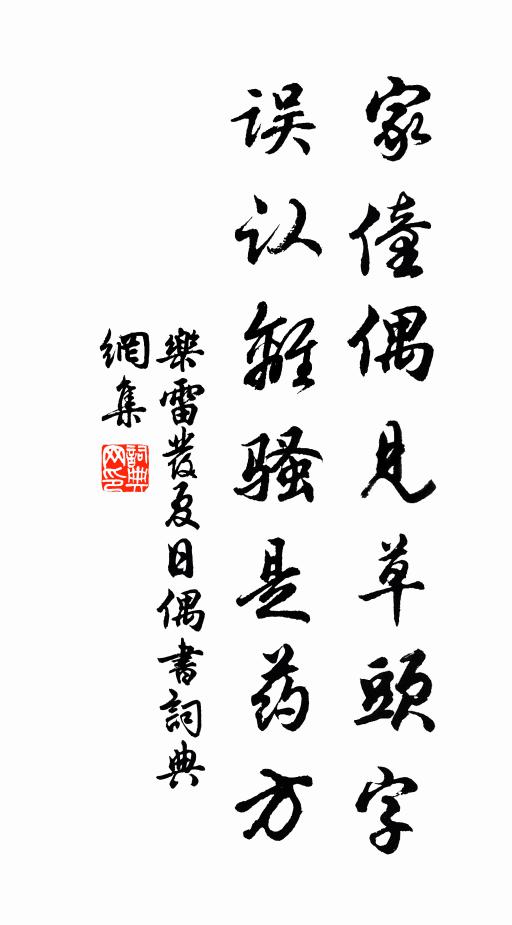 家僮偶見草頭字
误认離骚是药方
樂雷發夏日偶書詞典
網集
詞典
网印